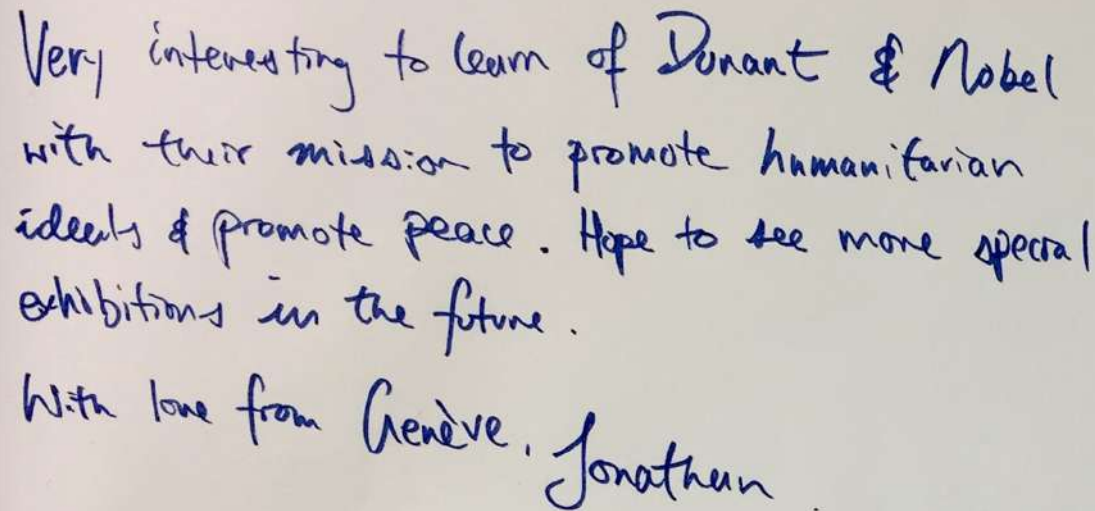 Very interesting to learn of Dunant & Nobel
with their mission to promote humanitarian
ideals & promote peace. Hope to see more special
exhibitions in the future.
With love from Genève, Jonathan